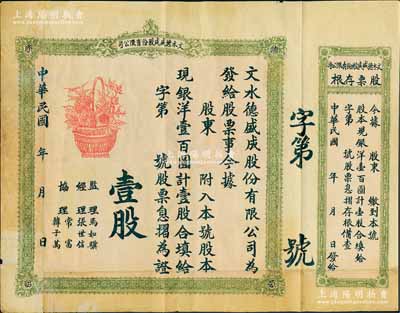 上海陽明拍賣
文水德盛成股份有限公司
文水德盛成股份有限公司為
發給股票事今據
股東 附入本號股本
現銀洋壹百圓計壹股合填給
字第 號股票息摺為證
壹股
監理 馬如驥
經理 張世信
協理 常富
韓子萬
中華民國 年 月 日
字第 號
股票存根
今據 股東 繳到本號
股本現銀洋壹百圓計壹股合填給
字第 號股票息摺存根備查
中華民國 年 月 日發給
上海陽明拍賣